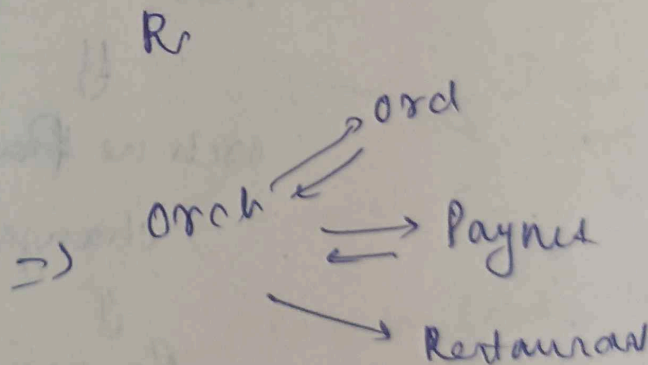 R
Ord
Orch
=> Paynet
Restauran